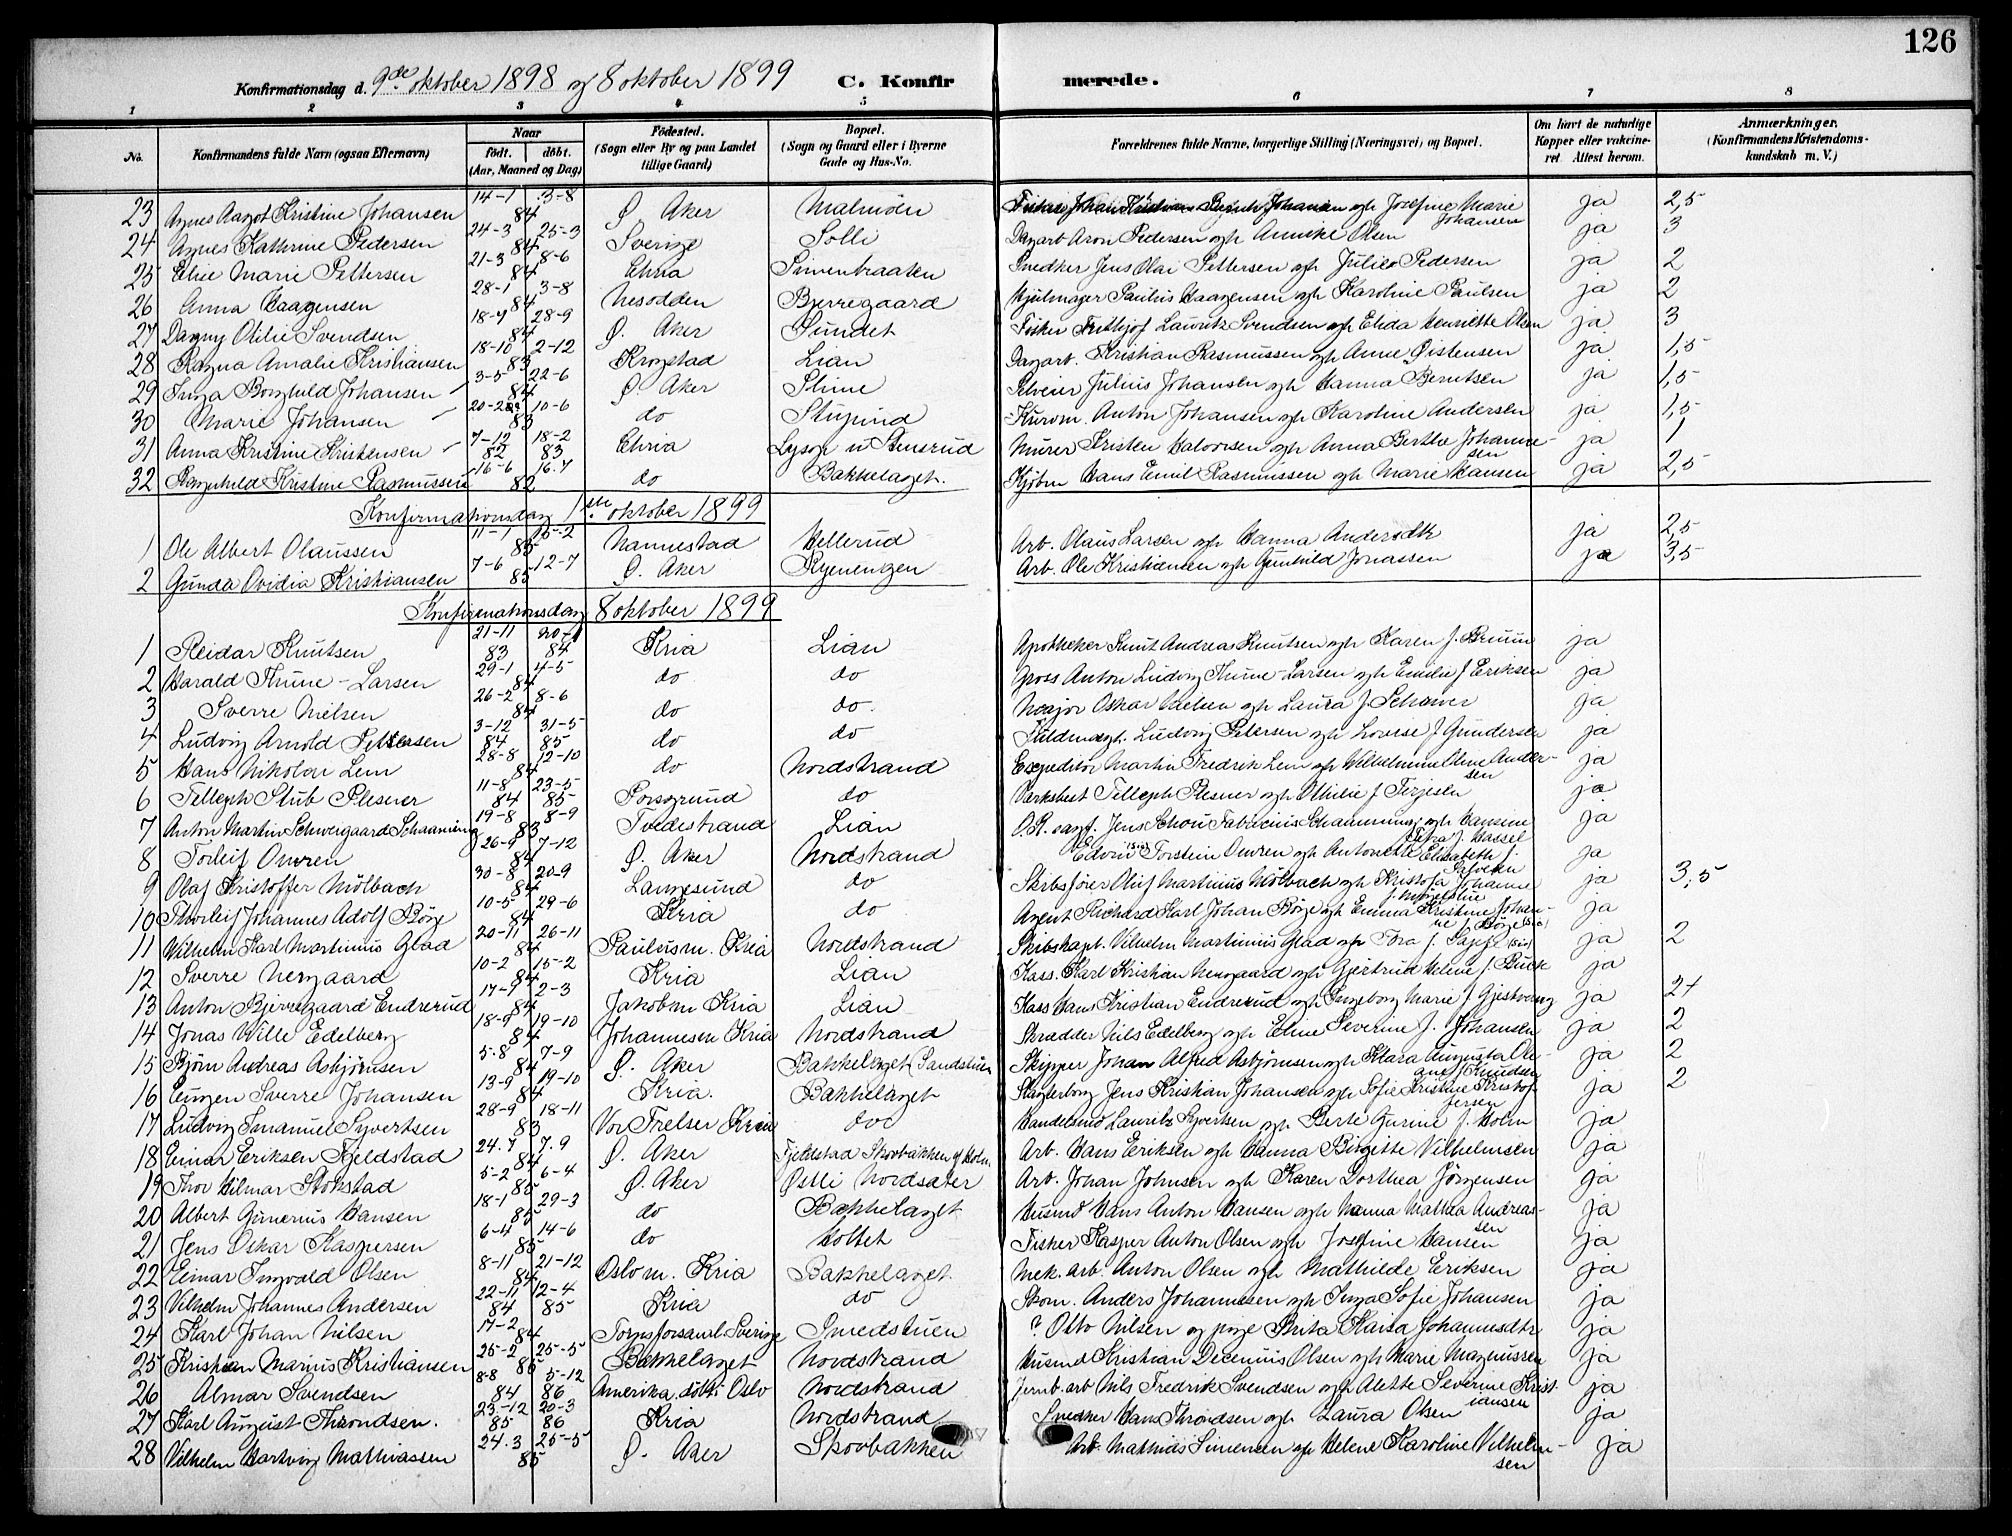 126
Konfirmationsdag d. 9de oktober 1898 og 8 oktober 1899 C. Konfirmerede.
1 2 3 4 5 6 7 8
No. Konfirmandens fulde Navn (ogsaa Efternavn) Naar født. døbt. (Aar, Maaned og Dag) Fødested. (Sogn eller By og paa Landet tillige Gaard) Bopæl. (Sogn og Gaard eller i Byerne Gade og Hus-No. Forældrenes fulde Navne, borgerlige Stilling (Næringsvei) og Bopæl. Om havt de naturlige Kopper eller vakcineret Attest herom. Anmærkninger. (Konfirmandens Kristendomskundskab m. V.)
23 Agnes Aagot Kristine Johansen 14-1 3-8 84 Ø. Aker Malmøen Josefine Marie Johansen ja 2,5
24 Agnes Kathrine Pedersen 24-3 25-3 84 Sverige Solli Dagarb Aron Pedersen og h Annike Olsen ja 3
25 Elise Marie Pettersen 21-3 8-6 84 Chria Simenbraaten Snedker Jens Olai Pettersen og h Julie Pedersen ja 2
26 Anna Haagensen 28-1 3-8 84 Nesodden Bjerregaard Hjulmager Paulus Haagensen og h Karoline Paulsen ja 2
27 Dagny Otilie Svendsen 18-7 28-9 84 Ø. Aker Sundet Fisker Frithjof Lauritz Svendsen og h Elida Henriette Olsen ja 3
28 Ragna Amalie Kristiansen 18-10 2-12 83 Krogstad Lian Dagarb. Kristian Rasmussen og h Anne Øistensen ja 1,5
29 Inga Borghild Johansen 3-5 22-6 84 Ø. Aker Stime Selveier Julius Johansen og h Hanna Berntsen ja 1,5
30 Marie Johansen 20-2 10-6 83 do Stupind Kurvm. Anton Johansen og h Karoline Andersen ja 1,5
31 Anna Kristine Kristensen 7-12 82 18-2 83 Chria Lysop u Stensrud Murer Kristen Halvorsen og Anna Berthe Johannesen ja 1
32 Ragnhild Kristine Rasmussen 16-6 16.7 82 do Bækkelaget. Kjøbm Hans Emil Rasmussen og h Marie Hansen ja 2,5
Konfirmationsdag 1ste oktober 1899
1 Ole Albert Olaussen 11-1 15-2 85 Nannestad Hellerud Arb. Olaus Larsen og h Hanna Andersdtr ja 2,5
2 Gunda Ovidia Kristiansen 7-6 12-7 85 Ø. Aker Ryenengen Arb. Ole Kristiansen og h Gunhild Jonassen ja 3,5
Konfirmationsdag 8 oktober 1899
1 Reidar Knutsen 21-11 83 84 Kria Lian Apotheker Knut Andreas Knutsen og h Karen f. Bruun ja
2 Harald Thune-Larsen 29-1 4-5 84 do do Gross Anton Ludvig Thune-Larsen og h Emilie f Eriksen ja
3 Sverre Nielsen 26-2 8-6 84 do do. Major Oskar Nielsen og h Laura f Schawer ja
4 Ludvig Arnold Pettersen 3-12 84 31-5 85 do do Fuldmægt. Ludvig Petersen og h Lovise f Gundersen ja
5 Hans Nikolai Lem 28-8 12-10 84 do Nordstrand Expeditør Martin Fredrik Lem og Vilhelmine Oline Andersen ja
6 Telleph Stub Plesner 11-8 84 23-5 85 Porsgrund do Værksbest Telleph Plesner og h Othilie f Terjesen ja
7 Anton Martin Schweigaard Schanning 19-8 8-9 83 Tvedestrand Lian O.R. sagf. Jens Schou Fabricius Schanning og h Hansine Petra f. Hassel ja
8 Torleif Omren 26-9 7-12 84 Ø. Aker Nordstrand Edvin (Sic) Torstein Omren og h Antonette Elisabeth f. Salvesen ja
9 Olaf Kristoffer Mølbach 30-8 20-9 84 Langesund do Skibsfører Oluf Martinius Mølbach og h Kristofa Johanne ja 3,5
10 Thorleif Johannes Adolf Börge 10-5 29-6 84 Kria do Agent Richard Karl Johan Börge og h Emma Kristine Johanne f. Börge (Sic) ja
11 Vilhelm Karl Martinius Glad 20-11 26-11 84 Paulus m. Kria Nordstrand Skibskapt. Vilhelm Martinius Glad og h Tora f. (Sic) ja 2
12 Sverre Nergaard 10-2 15-2 84 Kria Lian Kass. Karl Kristian Nergaard og h Gjertrud Helene f. Buck ja
13 Anton Bjerregaard Endrerud 17-9 2-3 84 Jakobm Kria Lian Kass Hans Kristian Endrerud og h Ingeborg Marie f. Gjestvang ja 2+
14 Jonas Wille Edelberg 18-9 19-10 84 Johannesm Kria Nordstrand Skradder Nils Edelberg og h Eline Severine f. Johansen ja 2
15 Bjørn Andreas Asbjörnsen 5-8 7-9 84 Ø. Aker Bækkelaget (Sandstuen Skipper Johan Alfred Asbjörnsen og h Klara Augusta Oliane f Knudsen ja 2
16 Eugen Sverre Johansen 13-9 19-10 84 Kria. Bækkelaget Slagterborg Jens Kristian Johansen og h Sofie Kristine Kristofersen ja 2
17 Ludvig Emanuel Syvertsen 28-9 18-11 83 Vor Frelser Kria do Handelsmd Lauritz Syvertsen og h Berte Gurine f. Holm ja
18 Einar Eriksen Fjeldstad 24.7 7.9 84 Ø. Aker Fjeldstad Skovbakken af Holm. Arb. Hans Eriksen og h Hanna Birgitte Vilhelmsen ja
19 Thor Hilmar Stokstad 5-2 6-4 85 Ø. Aker Østli Nordsæter Arb. Johan Johnsen og h Karen Dorthea Jørgensen ja
20 Albert Gunerius Hansen 18-1 29-3 85 do Bækkelaget Husmd Hans Anton Hansen og h Hanna Mathea Andreassen ja
21 Jens Oskar Kaspersen 6-4 14-6 85 do Holtet Fisker Kasper Anton Olsen og h Josefine Hansen ja
22 Einar Ingvald Olsen 8-11 21-12 84 Oslo m. Kria Bækkelaget Mek. arb. Anton Olsen og h Mathilde Eriksen ja
23 Vilhelm Johannes Andersen 22-11 84 12-4 85 Kria do Skom. Anders Johannesen og h Inga Sofie Johansen ja
24 Karl Johan Nilsen 17-2 84 Torpsforsaml. Sverige Smedstuen ? Otto Nilsen og pige Brita Kaisa Johannesdtr ja
25 Kristian Marius Kristiansen 25-2 25-5 85 Bækkelaget Nordstrand Husmd Kristian Decenius Olsen og h Marie Magnussen ja
26 Almar Svendsen 8-8 84 5-12 86 Amerika, döbt i Oslo Nordstrand Jernb. arb Nils Fredrik Svendsen og h Alette Severine Kristiansen ja
27 Karl August Throndsen. 23-12 85 20-3 86 Kria Nordstrand Snedker Hans Throndsen og h Laura Olsen ja
28 Vilhelm Hartvig Mathiassen 24.3 25-5 85 Ø. Aker Skovbakken Arb. Mathias Simensen og Helene Karoline Vilhelmsen ja